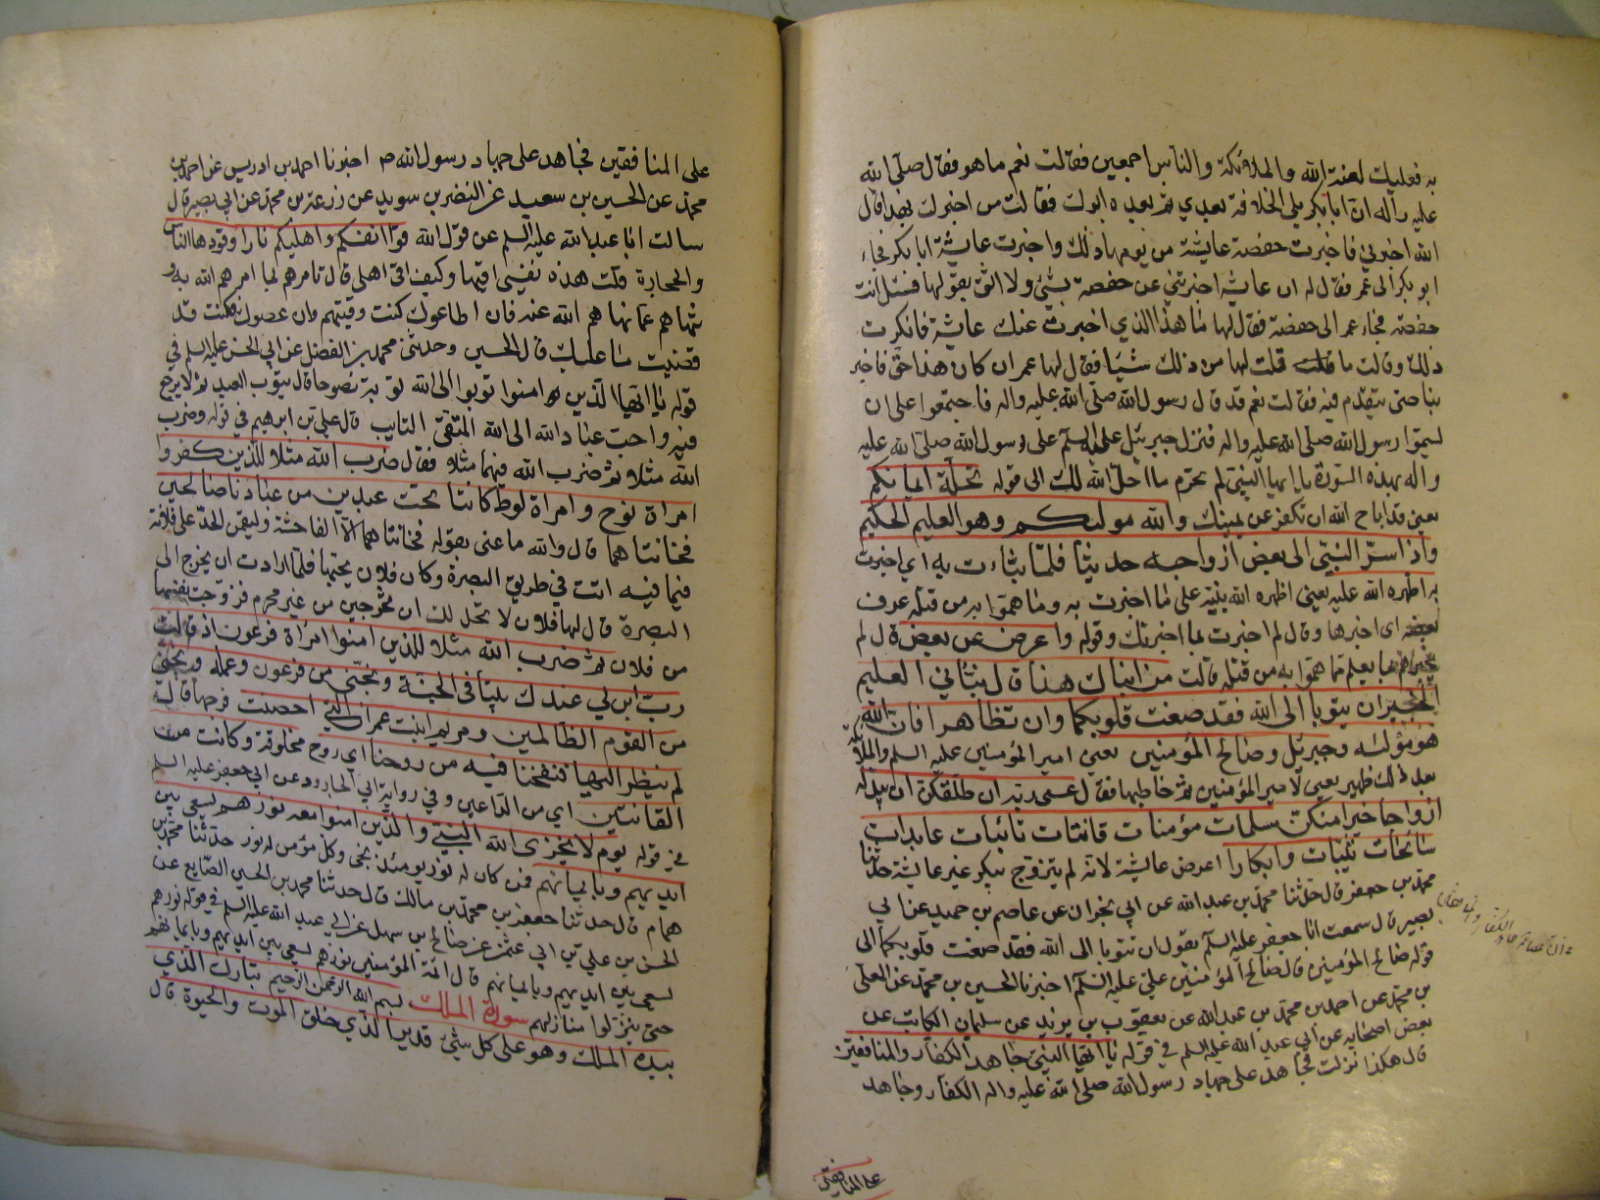 به فعليك لعنة الله والملائكة والناس اجمعين فقالت نعم ما هو فقال صلى الله
عليه واله ان ابا بكر يلي الخلافة بعدي ثم بعده ابوك فقالت من اخبرك بهذا قال
الله اخبرني فاخبرت حفصة عايشة من يومها ذلك واخبرت عايشة ابا بكر فجاء
ابو بكر الى عمر فقال له ان عايشة اخبرتني عن حفصة بشئ ولا اثق بقولها فسئل انت
حفصة فجاء عمر الى حفصة فقال لها ما هذا الذي اخبرت عنك عايشة فانكرت
ذلك وقالت ما قلت لها من ذلك شيئا فقال لها عمر ان كان هذا حق فاخبر
ينا حتى نتقدم فيه فقالت نعم قد قال رسول الله صلى الله عليه واله فاجتمعوا على ان
يسموا رسول الله صلى الله عليه واله فنزل جبرئيل عليه السلم على رسول الله صلى الله عليه
واله بهذه السورة يا ايها النبي لم تحرم ما احل الله لك الى قوله تحلة ايمانكم
يعني قد اباح الله ان تكفر عن يمينك والله موليكم وهو العليم الحكيم
واذ اسر النبي الى بعض ازواجه حديثا فلما نبات به اي اخبرت
به اظهره الله عليه يعني اظهره الله نبيه على ما اخبرت به وما هموا به من قتله عرف
بعضه اى اخبرها وقال لم اخبرت بما اخبرتك وقوله واعرض عن بعض قال لم
يخبرهم بما يعلم مما هموا به من قتله قالت من انباك هذا قال نبأني العليم
الخبير ان تتوبا الى الله فقد صغت قلوبكما وان تظاهرا فان الله
هو موليه وجبرئل وصالح المؤمنين يعني امير المؤمنين عليه السلم والملائكة
بعد ذلك ظهير يعني لامير المؤمنين ثم خاطبها فقال عسى ربه ان طلقكن ان يبدله
ازواجا خيرا منكن مسلمات مؤمنات قانتات تائبات عابدات
سائحات ثيبات وابكارا اعرض عايشة لانه لم يتزوج ببكر غير عايشة حدثنا
محمد بن جعفر قال حدثنا محمد بن عبد الله عن ابي نجران عن عاصم بن حميد عن ابي
بصير قال سمعت ابا جعفر عليه السلم يقول ان تتوبا الى الله فقد صغت قلوبكما الى
قوله صالح المؤمنين قال صالح المؤمنين علي عليه السلم اخبرنا الحسين بن محمد عن المعلى
بن محمد عن احمد بن محمد بن عبد الله عن يعقوب بن يزيد عن سليمان الكاتب عن
بعض اصحابه عن ابي عبد الله عليه السلم في قوله يا ايها النبي جاهد الكفار والمنافقين
قال هكذا نزلت فجاهد على جهاد رسول الله صلى الله عليه واله الكفار وجاهد
على المنافقين
على المنافقين فجاهد على جهاد رسول الله ص اخبرنا احمد بن ادريس عن احمد بن
محمد عن الحسين بن سعيد عن النضر بن سويد عن زرعة بن محمد عن ابي بصير قال
سالت ابا عبد الله عليه السلم عن قول الله قوا انفسكم واهليكم نارا وقودها الناس
والحجارة قلت هذه نفسي اقيها وكيف اقي اهلي قال تامرهم بما امرهم الله به و
تنهاهم عما نهاهم الله عنه فان اطاعوك كنت وقيتهم وان عصوك فكنت قد
قضيت ما عليك قال الحسين وحدثني محمد بن الفضل عن ابي الحسن عليه السلم في
قوله يا ايها الذين امنوا توبوا الى الله توبة نصوحا قال يتوب العبد ثم لا يرجع
فيه واحب عباد الله الى الله المتقي التايب قال علي بن ابرهيم في قوله وضرب
الله مثلا ثم ضرب الله فيهما مثلا فقال ضرب الله مثلا للذين كفروا
امراة نوح وامراة لوط كانتا تحت عبدين من عبادنا صالحين
فخانتاهما قال والله ما عنى بقوله فخانتاهما الا الفاحشة وليقيمن الحد على فلانة
فيما فيه اتت في طريق البصرة وكان فلان يحبها فلما ارادت ان يخرج الى
البصرة قال لها فلان لا تحل لك ان تخرجين من غير محرم فزوجت نفسها
من فلان ثم ضرب الله مثلا للذين امنوا امراة فرعون اذ قالت
رب ابن لي عندك بيتا في الجنة ونجني من فرعون وعمله ونجني
من القوم الظالمين ومريم ابنت عمران التي احصنت فرجها قال
لم ينظر اليها فنفخنا فيه من روحنا اي روح مخلوقة وكانت من
القانتين اي من الداعين وفي رواية ابي الجارود عن ابي جعفر عليه السلم
في قوله يوم لا يخزى الله النبي والذين امنوا معه نورهم يسعى بين
ايديهم وبايمانهم فمن كان له نور يومئذ نجى وكل مؤمن له نور حدثنا محمد بن
همام قال حدثنا جعفر بن محمد بن مالك قال حدثنا محمد بن الحسين الصايغ عن
الحسن بن علي بن ابي عثمن عن صالح بن سهل عن ابي عبد الله عليه السلم في قوله نورهم
يسعى بين ايديهم وبايمانهم قال ائمة المؤمنين نورهم يسعى بين ايديهم وبايمانهم
حتى ينزلوا منازلهم سورة الملك بسم الله الرحمن الرحيم تبارك الذي
بيده الملك وهو على كل شئ قدير الذي خلق الموت والحيوة قال